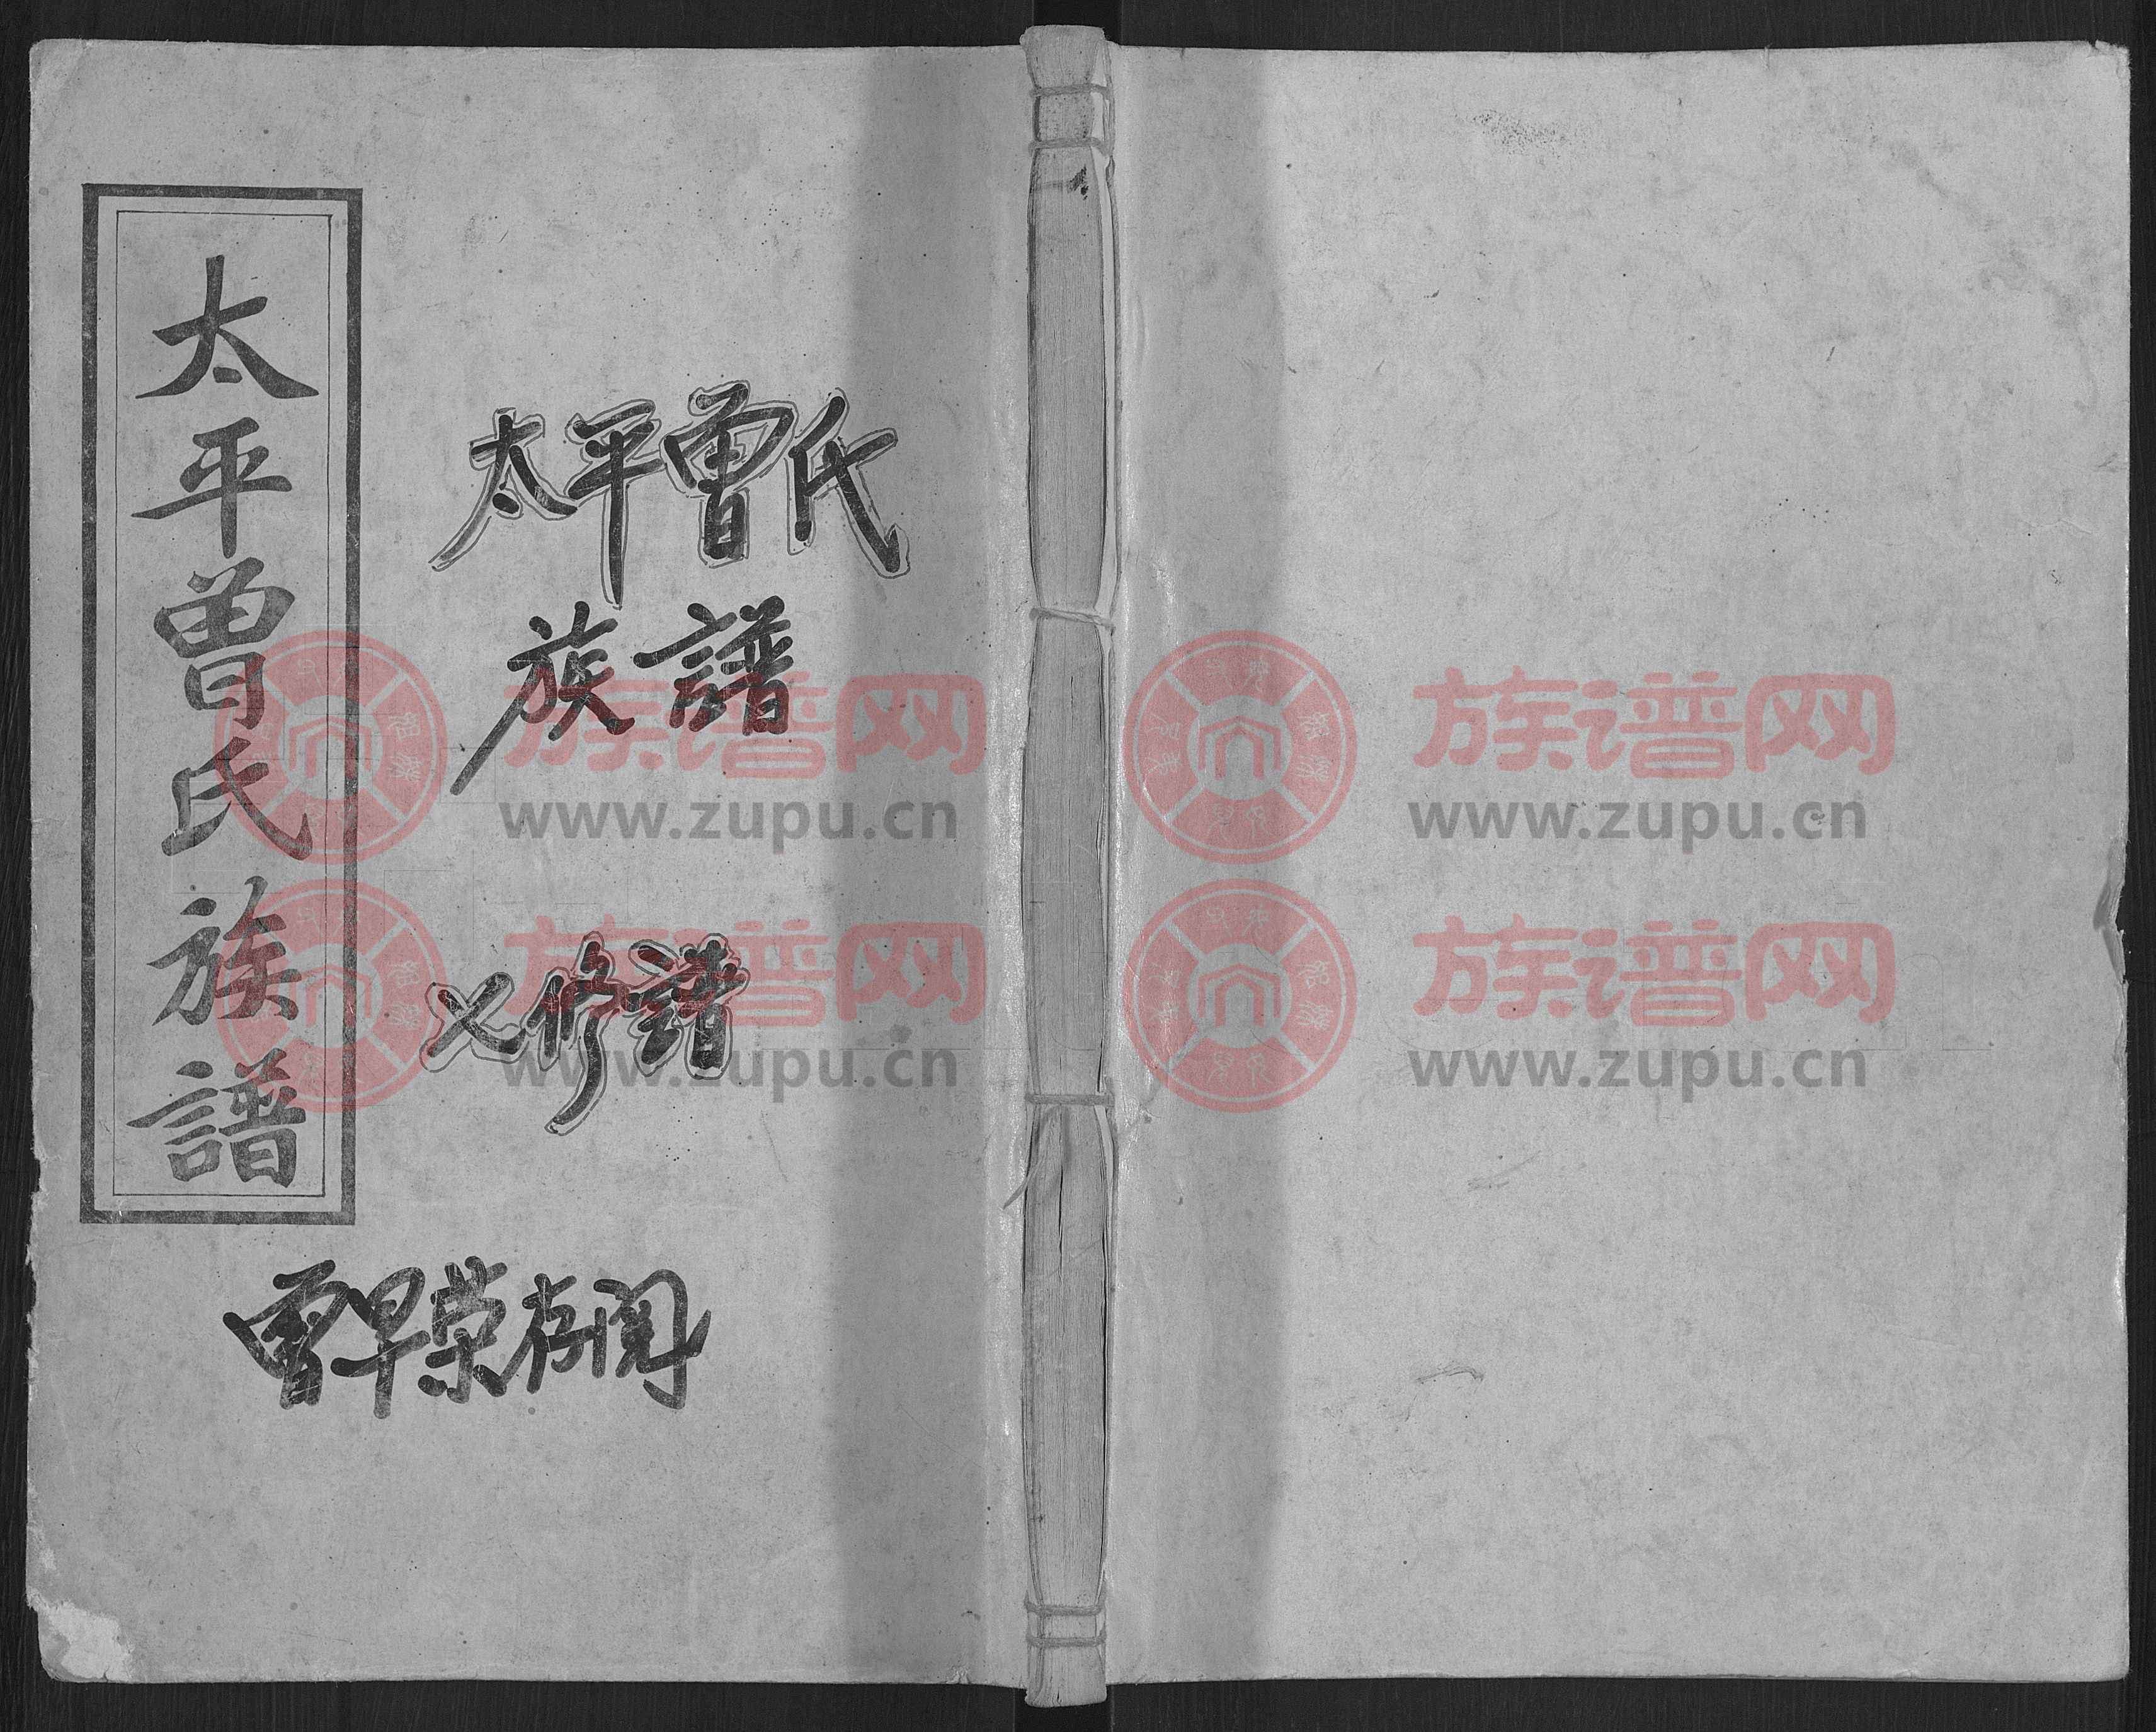 太平曾氏族譜
太平曾氏
族譜
七修譜
曾早荣存阅
族谱网
www.zupu.cn
族谱网
www.zupu.cn
族谱网
www.zupu.cn
族谱网
www.zupu.cn